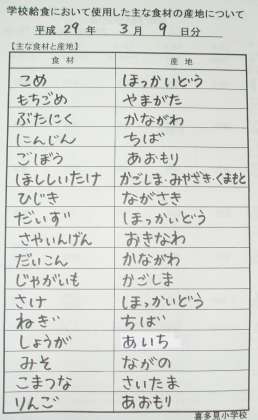 学校給食において使用した主な食材の産地について
平成 29 年 3 月 9 日分
【主な食材と産地】
食材 産地
こめ ほっかいどう
もちごめ やまがた
ぶたにく かながわ
にんじん ちば
ごぼう あおもり
ほししいたけ かごしま・みやざき・くまもと
ひじき ながさき
だいず ほっかいどう
さやいんげん おきなわ
だいこん かながわ
じゃがいも かごしま
さけ ほっかいどう
ねぎ ちば
しょうが あいち
みそ ながの
こまつな さいたま
りんご あおもり
喜多見小学校